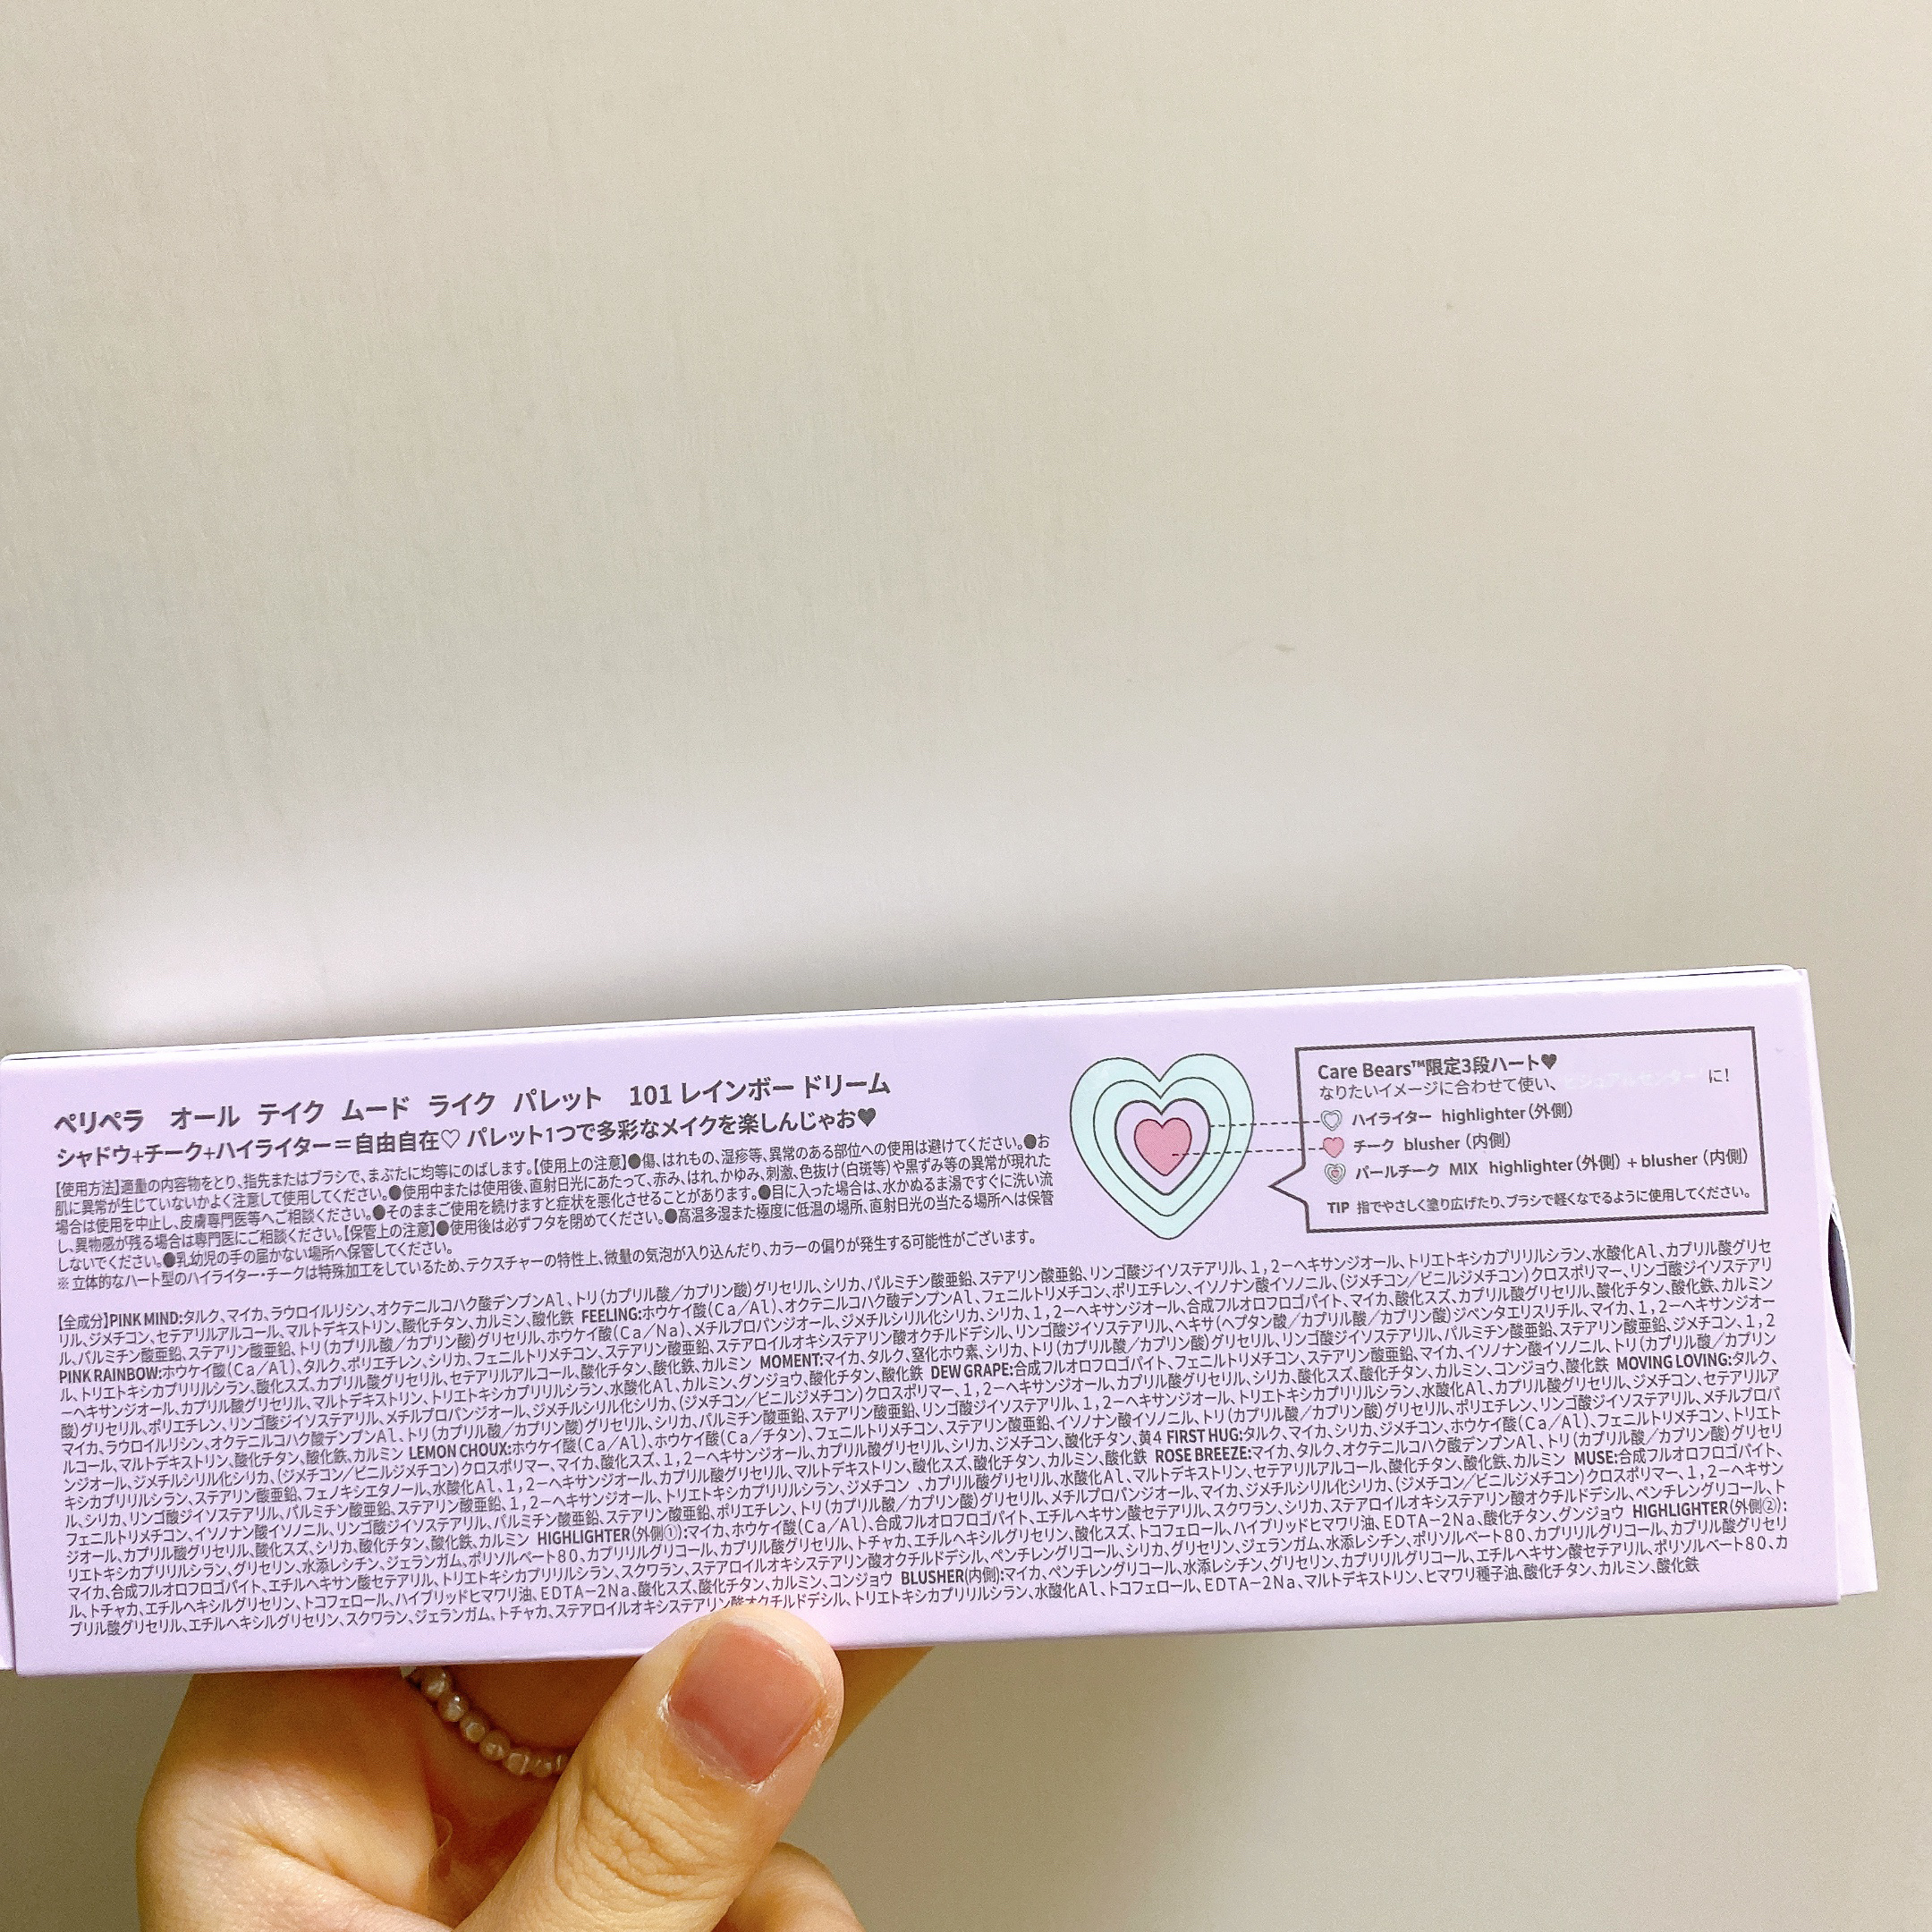 ペリペラ オール テイク ムード ライク パレット 101 レインボー ドリーム
シャドウ+チーク+ハイライター=自由自在♡ パレット1つで多彩なメイクを楽しんじゃお♥
【使用方法】適量の内容物をとり、指先またはブラシで、まぶたに均等にのばします。【使用上の注意】●傷、はれもの、湿疹等、異常のある部位への使用は避けてください。●お
肌に異常が生じていないかよく注意して使用してください。●使用中または使用後、直射日光にあたって、赤み、はれ、かゆみ、刺激、色抜け(白斑等)や黒ずみ等の異常が現れた
場合は使用を中止し、皮膚専門医等へご相談ください。●そのままご使用を続けますと症状を悪化させることがあります。●目に入った場合は、水かぬるま湯ですぐに洗い流
し、異物感が残る場合は専門医にご相談ください。【保管上の注意】●使用後は必ずフタを閉めてください。●高温多湿また極度に低温の場所、直射日光の当たる場所へは保管
しないでください。●乳幼児の手の届かない場所へ保管してください。
※立体的なハート型のハイライター・チークは特殊加工をしているため、テクスチャーの特性上、微量の気泡が入り込んだり、カラーの偏りが発生する可能性がございます。
Care Bears™限定3段ハート♥
なりたいイメージに合わせて使い、ビジュアルセンターに!
ハイライター highlighter(外側)
チーク blusher(内側)
パールチーク MIX highlighter(外側)+blusher(内側)
TIP 指でやさしく塗り広げたり、ブラシで軽くなでるように使用してください。
【全成分】PINK MIND:タルク、マイカ、ラウロイルリシン、オクテニルコハク酸デンプンAl、トリ(カプリル酸/カプリン酸)グリセリル、シリカ、パルミチン酸亜鉛、ステアリン酸亜鉛、リンゴ酸ジイソステアリル、1,2-ヘキサンジオール、トリエトキシカプリリルシラン、水酸化Al、カプリル酸グリセ
リル、ジメチコン、セテアリルアルコール、マルトデキストリン、酸化チタン、カルミン、酸化鉄 FEELING:ホウケイ酸(Ca/Al)、オクテニルコハク酸デンプンAl、フェニルトリメチコン、ポリエチレン、イソノナン酸イソノニル、(ジメチコン/ビニルジメチコン)クロスポリマー、リンゴ酸ジイソステアリ
ル、パルミチン酸亜鉛、ステアリン酸亜鉛、トリ(カプリル酸/カプリン酸)グリセリル、ホウケイ酸(Ca/Na)、メチルプロパンジオール、ジメチルシリル化シリカ、シリカ、1,2-ヘキサンジオール、合成フルオロフロゴパイト、マイカ、酸化スズ、カプリル酸グリセリル、酸化チタン、酸化鉄、カルミン
PINK RAINBOW:ホウケイ酸(Ca/Al)、タルク、ポリエチレン、シリカ、フェニルトリメチコン、ステアロイルオキシステアリン酸オクチルドデシル、リンゴ酸ジイソステアリル、ヘキサ(ヘプタン酸/カプリル酸/カプリン酸)ジペンタエリスリチル、マイカ、1,2-ヘキサンジオー
ル、トリエトキシカプリリルシラン、酸化スズ、カプリル酸グリセリル、セテアリルアルコール、酸化チタン、酸化鉄、カルミン MOMENT:マイカ、タルク、窒化ホウ素、シリカ、トリ(カプリル酸/カプリン酸)グリセリル、リンゴ酸ジイソステアリル、パルミチン酸亜鉛、ステアリン酸亜鉛、ジメチコン、1,2
-ヘキサンジオール、カプリル酸グリセリル、マルトデキストリン、トリエトキシカプリリルシラン、水酸化Al、カルミン、グンジョウ、酸化チタン、酸化鉄 DEW GRAPE:合成フルオロフロゴパイト、フェニルトリメチコン、ステアリン酸亜鉛、マイカ、イソノナン酸イソノニル、トリ(カプリル酸/カプリン
酸)グリセリル、ポリエチレン、リンゴ酸ジイソステアリル、メチルプロパンジオール、ジメチルシリル化シリカ、(ジメチコン/ビニルジメチコン)クロスポリマー、1,2-ヘキサンジオール、カプリル酸グリセリル、シリカ、酸化スズ、酸化チタン、カルミン、コンジョウ、酸化鉄 MOVING LOVING:タルク、
マイカ、ラウロイルリシン、オクテニルコハク酸デンプンAl、トリ(カプリル酸/カプリン酸)グリセリル、シリカ、パルミチン酸亜鉛、ステアリン酸亜鉛、リンゴ酸ジイソステアリル、1,2-ヘキサンジオール、トリエトキシカプリリルシラン、水酸化Al、カプリル酸グリセリル、ジメチコン、セテアリルア
ルコール、マルトデキストリン、酸化チタン、酸化鉄、カルミン LEMON CHOUX:ホウケイ酸(Ca/Al)、ホウケイ酸(Ca/チタン)、フェニルトリメチコン、ステアリン酸亜鉛、イソノナン酸イソノニル、トリ(カプリル酸/カプリン酸)グリセリル、ポリエチレン、リンゴ酸ジイソステアリル、メチルプロパ
ンジオール、ジメチルシリル化シリカ、(ジメチコン/ビニルジメチコン)クロスポリマー、マイカ、酸化スズ、1,2-ヘキサンジオール、カプリル酸グリセリル、シリカ、ジメチコン、酸化チタン、黄4 FIRST HUG:タルク、マイカ、シリカ、ジメチコン、ホウケイ酸(Ca/Al)、フェニルトリメチコン、トリエト
キシカプリリルシラン、ステアリン酸亜鉛、フェノキシエタノール、水酸化Al、1,2-ヘキサンジオール、カプリル酸グリセリル、マルトデキストリン、酸化スズ、酸化チタン、カルミン、酸化鉄 ROSE BREEZE:マイカ、タルク、オクテニルコハク酸デンプンAl、トリ(カプリル酸/カプリン酸)グリセリ
ル、シリカ、リンゴ酸ジイソステアリル、パルミチン酸亜鉛、ステアリン酸亜鉛、1,2-ヘキサンジオール、トリエトキシカプリリルシラン、ジメチコン、カプリル酸グリセリル、水酸化Al、マルトデキストリン、セテアリルアルコール、酸化チタン、酸化鉄、カルミン MUSE:合成フルオロフロゴパイト、
フェニルトリメチコン、イソノナン酸イソノニル、リンゴ酸ジイソステアリル、パルミチン酸亜鉛、ステアリン酸亜鉛、ポリエチレン、トリ(カプリル酸/カプリン酸)グリセリル、メチルプロパンジオール、マイカ、ジメチルシリル化シリカ、(ジメチコン/ビニルジメチコン)クロスポリマー、1,2-ヘキサン
ジオール、カプリル酸グリセリル、酸化スズ、シリカ、酸化チタン、酸化鉄、カルミン HIGHLIGHTER(外側①):マイカ、ホウケイ酸(Ca/Al)、合成フルオロフロゴパイト、エチルヘキサン酸セテアリル、スクワラン、シリカ、ステアロイルオキシステアリン酸オクチルドデシル、ペンチレングリコール、ト
リエトキシカプリリルシラン、グリセリン、水添レシチン、ジェランガム、ポリソルベート80、カプリリルグリコール、カプリル酸グリセリル、トチャカ、エチルヘキシルグリセリン、酸化スズ、トコフェロール、ハイブリッドヒマワリ油、EDTA-2Na、酸化チタン、グンジョウ HIGHLIGHTER(外側②):
マイカ、合成フルオロフロゴパイト、エチルヘキサン酸セテアリル、トリエトキシカプリリルシラン、スクワラン、ステアロイルオキシステアリン酸オクチルドデシル、ペンチレングリコール、シリカ、グリセリン、ジェランガム、水添レシチン、ポリソルベート80、カプリリルグリコール、カプリル酸グリセリ
ル、トチャカ、エチルヘキシルグリセリン、トコフェロール、ハイブリッドヒマワリ油、EDTA-2Na、酸化スズ、酸化チタン、カルミン、コンジョウ BLUSHER(内側):マイカ、ペンチレングリコール、水添レシチン、グリセリン、カプリリルグリコール、エチルヘキサン酸セテアリル、ポリソルベート80、カ
プリル酸グリセリル、エチルヘキシルグリセリン、スクワラン、ジェランガム、トチャカ、ステアロイルオキシステアリン酸オクチルドデシル、トリエトキシカプリリルシラン、水酸化Al、トコフェロール、EDTA-2Na、マルトデキストリン、ヒマワリ種子油、酸化チタン、カルミン、酸化鉄